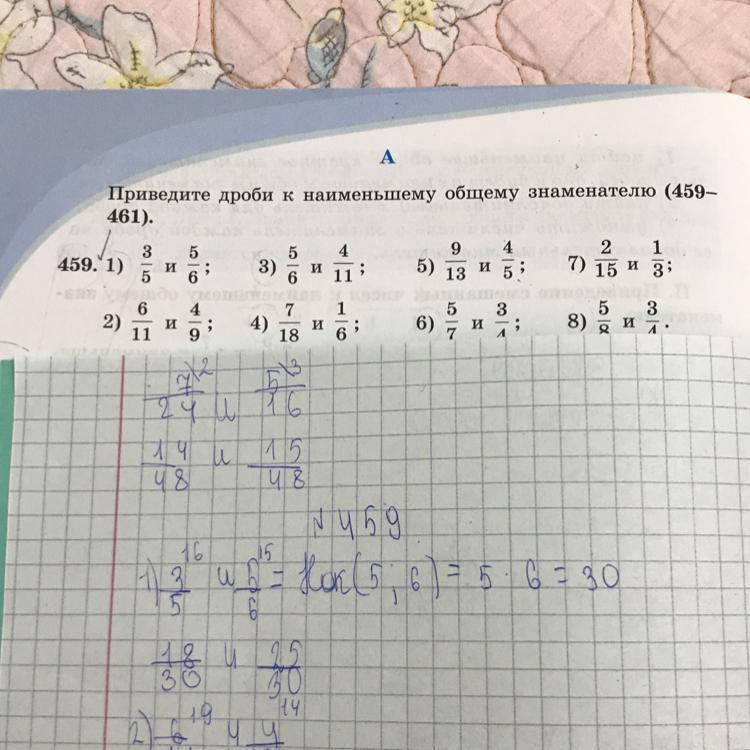 А
Приведите дроби к наименьшему общему знаменателю (459–
461).
459. 1) 3/5 и 5/6; 3) 5/6 и 4/11; 5) 9/13 и 4/5; 7) 2/15 и 1/3;
2) 6/11 и 4/9; 4) 7/18 и 1/6; 6) 5/7 и 3/4; 8) 5/8 и 3/4.
7\2/24 и 5\3/16
14/48 и 15/48
№459
1) 3\6/5 и 5\5/6 = Нок(5; 6) = 5 · 6 = 30
18/30 и 25/30
2) 6\9 и 4